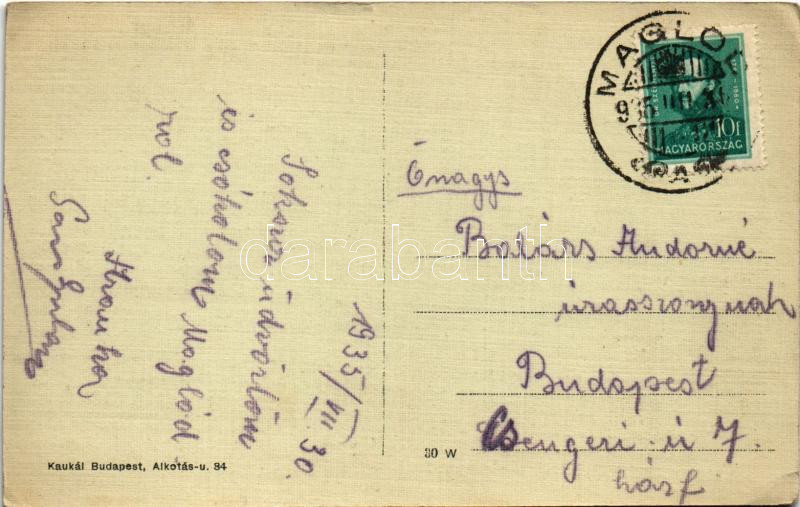 1935/VII.30.
Sokszor üdvözlöm
és csókolom Maglód
ról.
Kaukál Budapest, Alkotás-u. 34
30 W
MAGLÓD
935 VII 30
10f
MAGYARORSZÁG
Őnagys
Balázs Andorné
úrasszonynak
Budapest
Csengeri-ú 7.
házf
darabanth